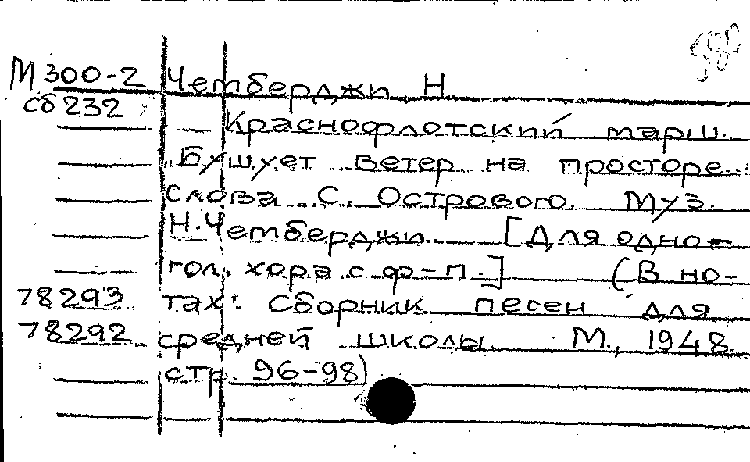 М 300-2 Чемберджи Н.
сб 232
Краснофлотский марш.
Бушует ветер на просторе...
Слова С. Острового. Муз.
Н. Чемберджи. [Для одно-
гол. хора с ф-п.] (В но-
78293 тах: Сборник песен для
78292 средней школы. М., 1948.
стр. 96-98)